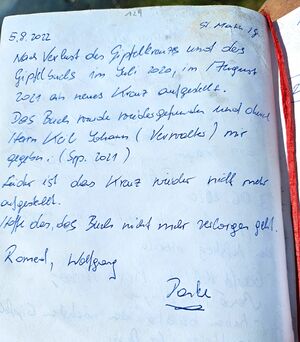 129
5.8.2022
St. Martin i. G.
Nach Verlust des Gipfelkreuzes und des
Gipfelbuchs im Juli 2020, im August
2021 ein neues Kreuz aufgestellt.
Das Buch wurde wiedergefunden und durch
Herrn Johann (Verwalter) mir
gegeben. (Sep. 2021)
Leider ist das Kreuz wieder nicht mehr
aufgestellt.
Hoffe das, das Buch nicht mehr verloren geht.
Wolfgang
Danke